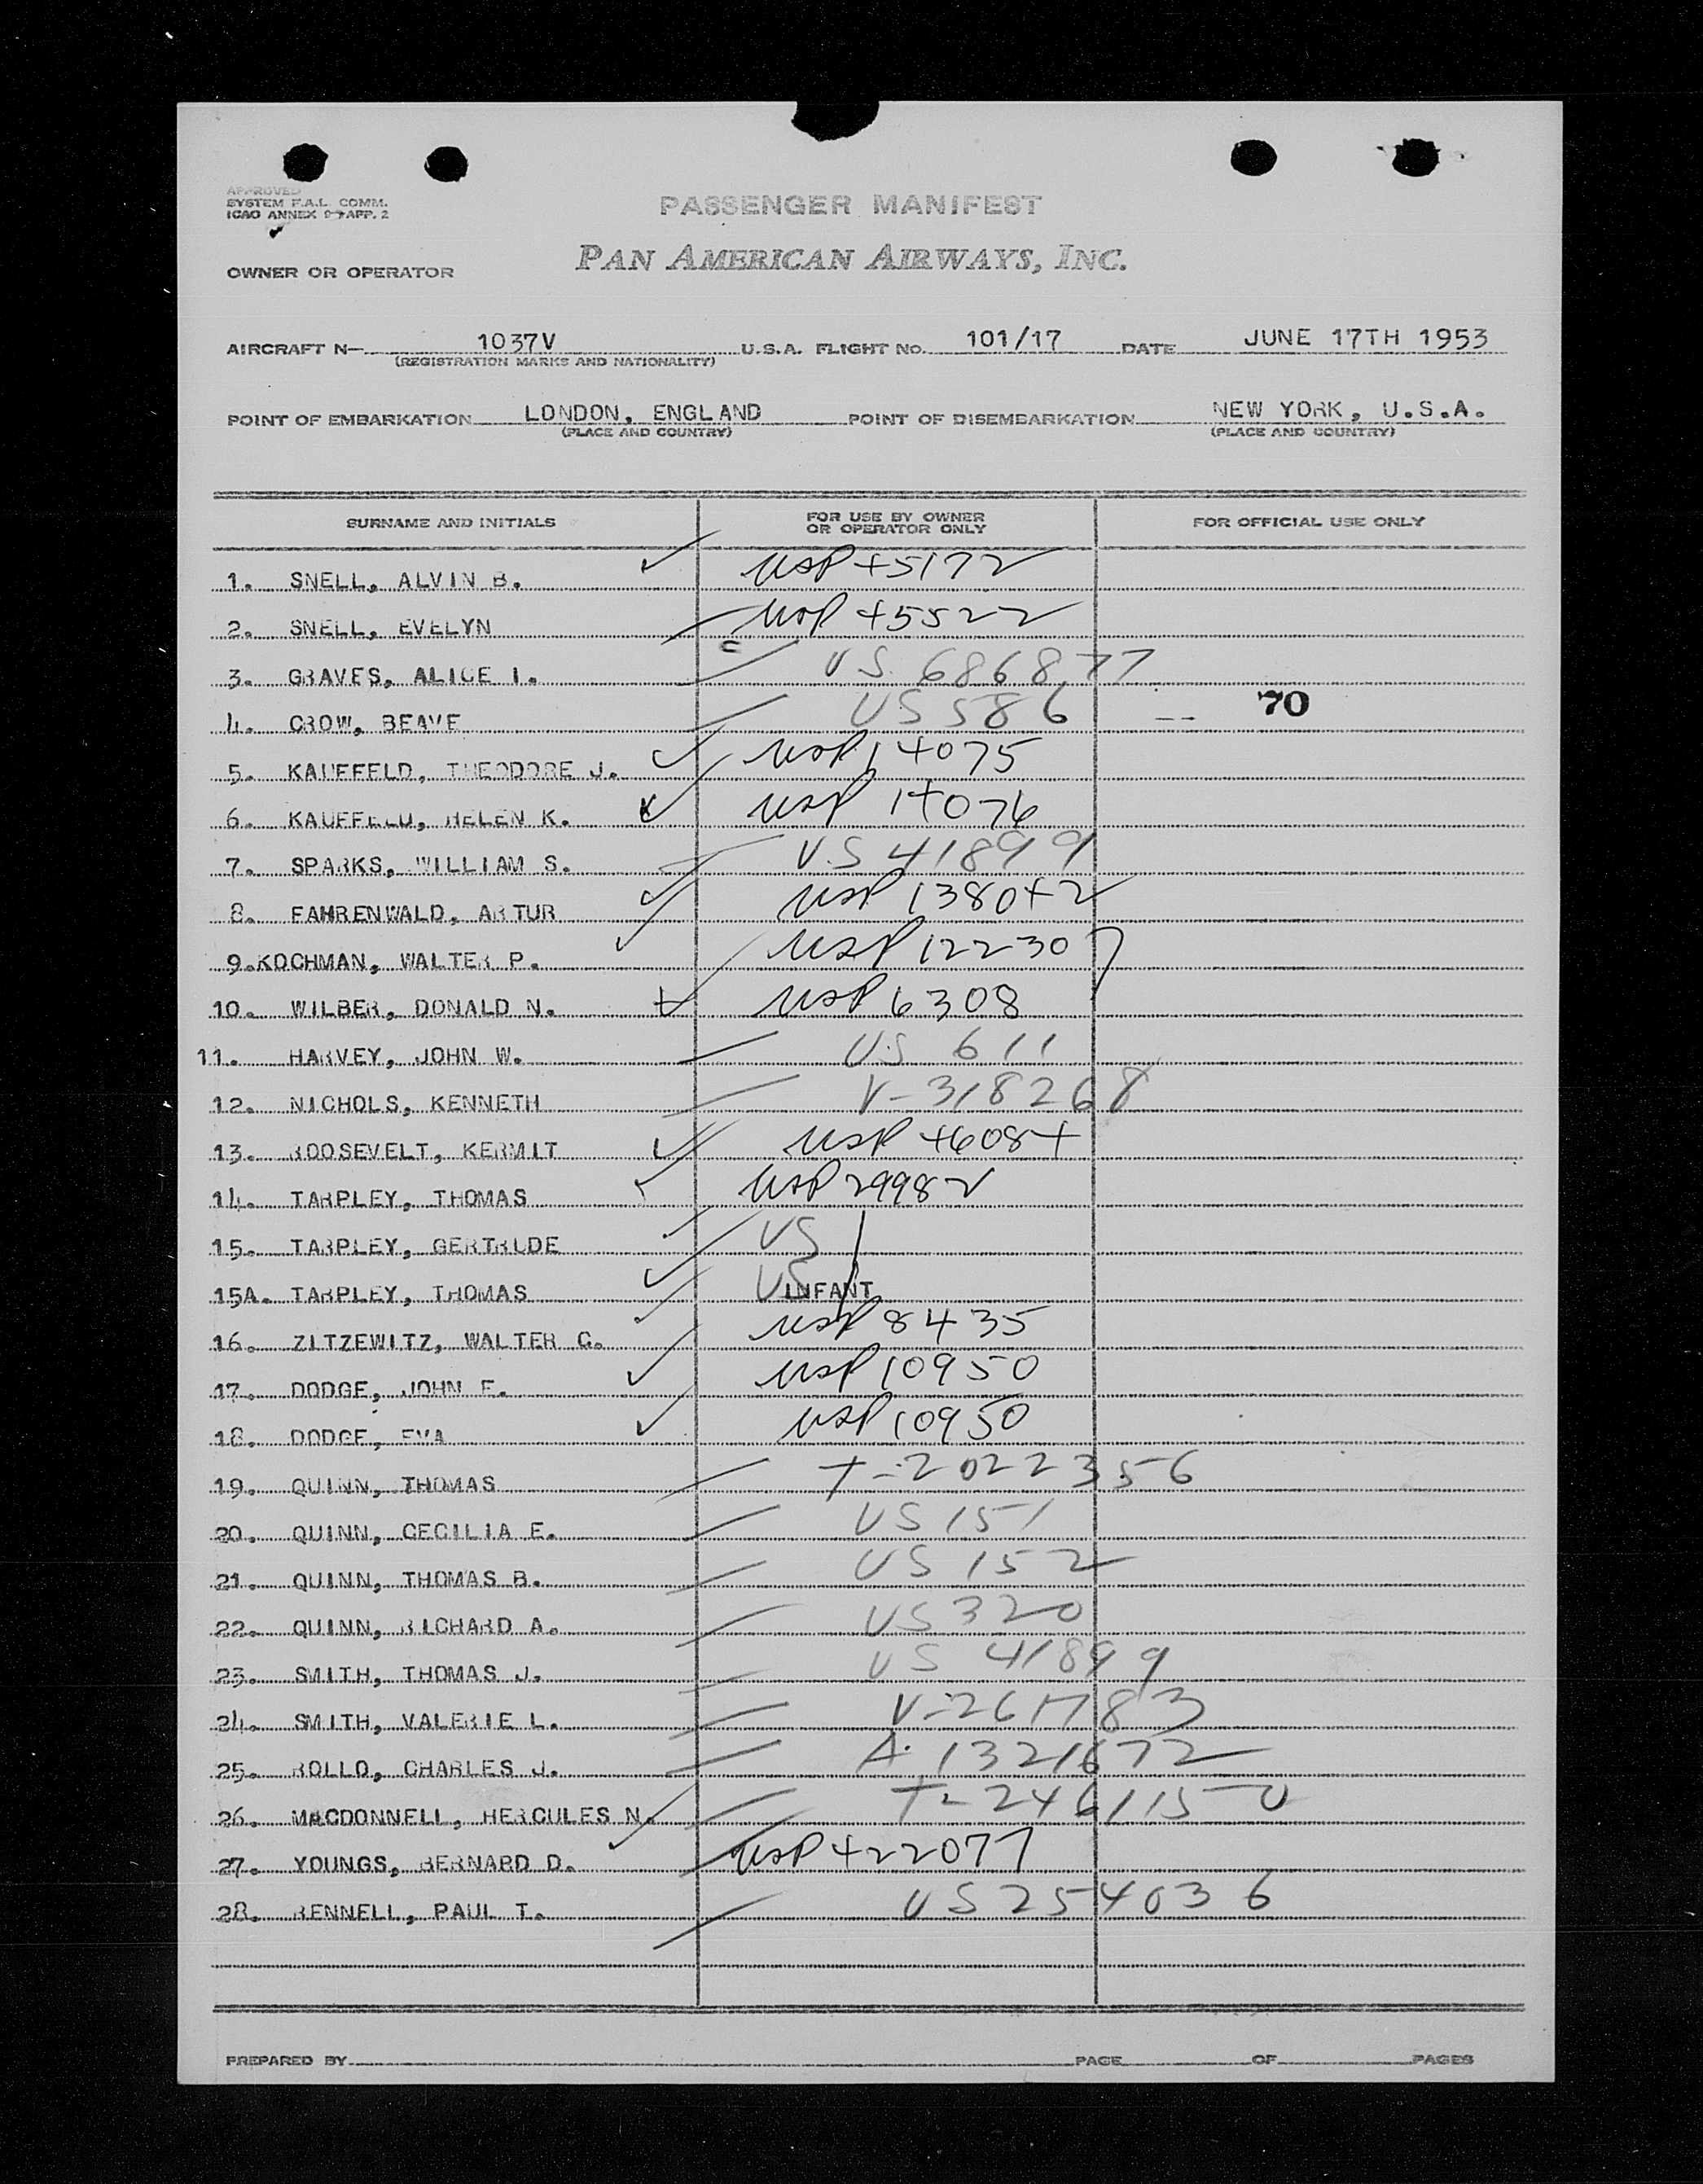 APPROVED
SYSTEM F.A.L. COMM.
ICAO ANNEX 9 APP. 2
PASSENGER MANIFEST
OWNER OR OPERATOR PAN AMERICAN AIRWAYS, INC.
AIRCRAFT N- 1037V U.S.A. FLIGHT NO. 101/17 DATE JUNE 17TH 1953
(REGISTRATION MARKS AND NATIONALITY)
POINT OF EMBARKATION LONDON, ENGLAND POINT OF DISEMBARKATION NEW YORK, U.S.A.
(PLACE AND COUNTRY) (PLACE AND COUNTRY)
SURNAME AND INITIALS FOR USE BY OWNER OR OPERATOR ONLY FOR OFFICIAL USE ONLY
1. SNELL, ALVIN B. USP 45172
2. SNELL, EVELYN USP 45522
3. GRAVES, ALICE I. c US 686877
4. CROW, BEAVE US 586 70
5. KAUFFELD, THEODORE J. USP 14075
6. KAUFFELD, HELEN K. USP 14076
7. SPARKS, WILLIAM S. US 41899
8. FAHRENWALD, ARTUR USP 138042
9. KOCHMAN, WALTER P. USP 122307
10. WILBER, DONALD N. USP 6308
11. HARVEY, JOHN W. US 611
12. NICHOLS, KENNETH V-318268
13. ROOSEVELT, KERMIT USP 46084
14. TARPLEY, THOMAS USP 29982
15. TARPLEY, GERTRUDE US
15A. TARPLEY, THOMAS US INFANT
16. ZITZEWITZ, WALTER G. USP 8435
17. DODGE, JOHN F. USP 10950
18. DODGE, EVA USP 10950
19. QUINN, THOMAS T-2022356
20. QUINN, CECILIA E. US 151
21. QUINN, THOMAS B. US 152
22. QUINN, RICHARD A. US 320
23. SMITH, THOMAS J. US 41899
24. SMITH, VALERIE L. V-261783
25. ROLLO, CHARLES J. A-1321672
26. MACDONNELL, HERCULES N. T-2461150
27. YOUNGS, BERNARD D. USP 422077
28. RENNELL, PAUL T. US 254036
PREPARED BY PAGE OF PAGES